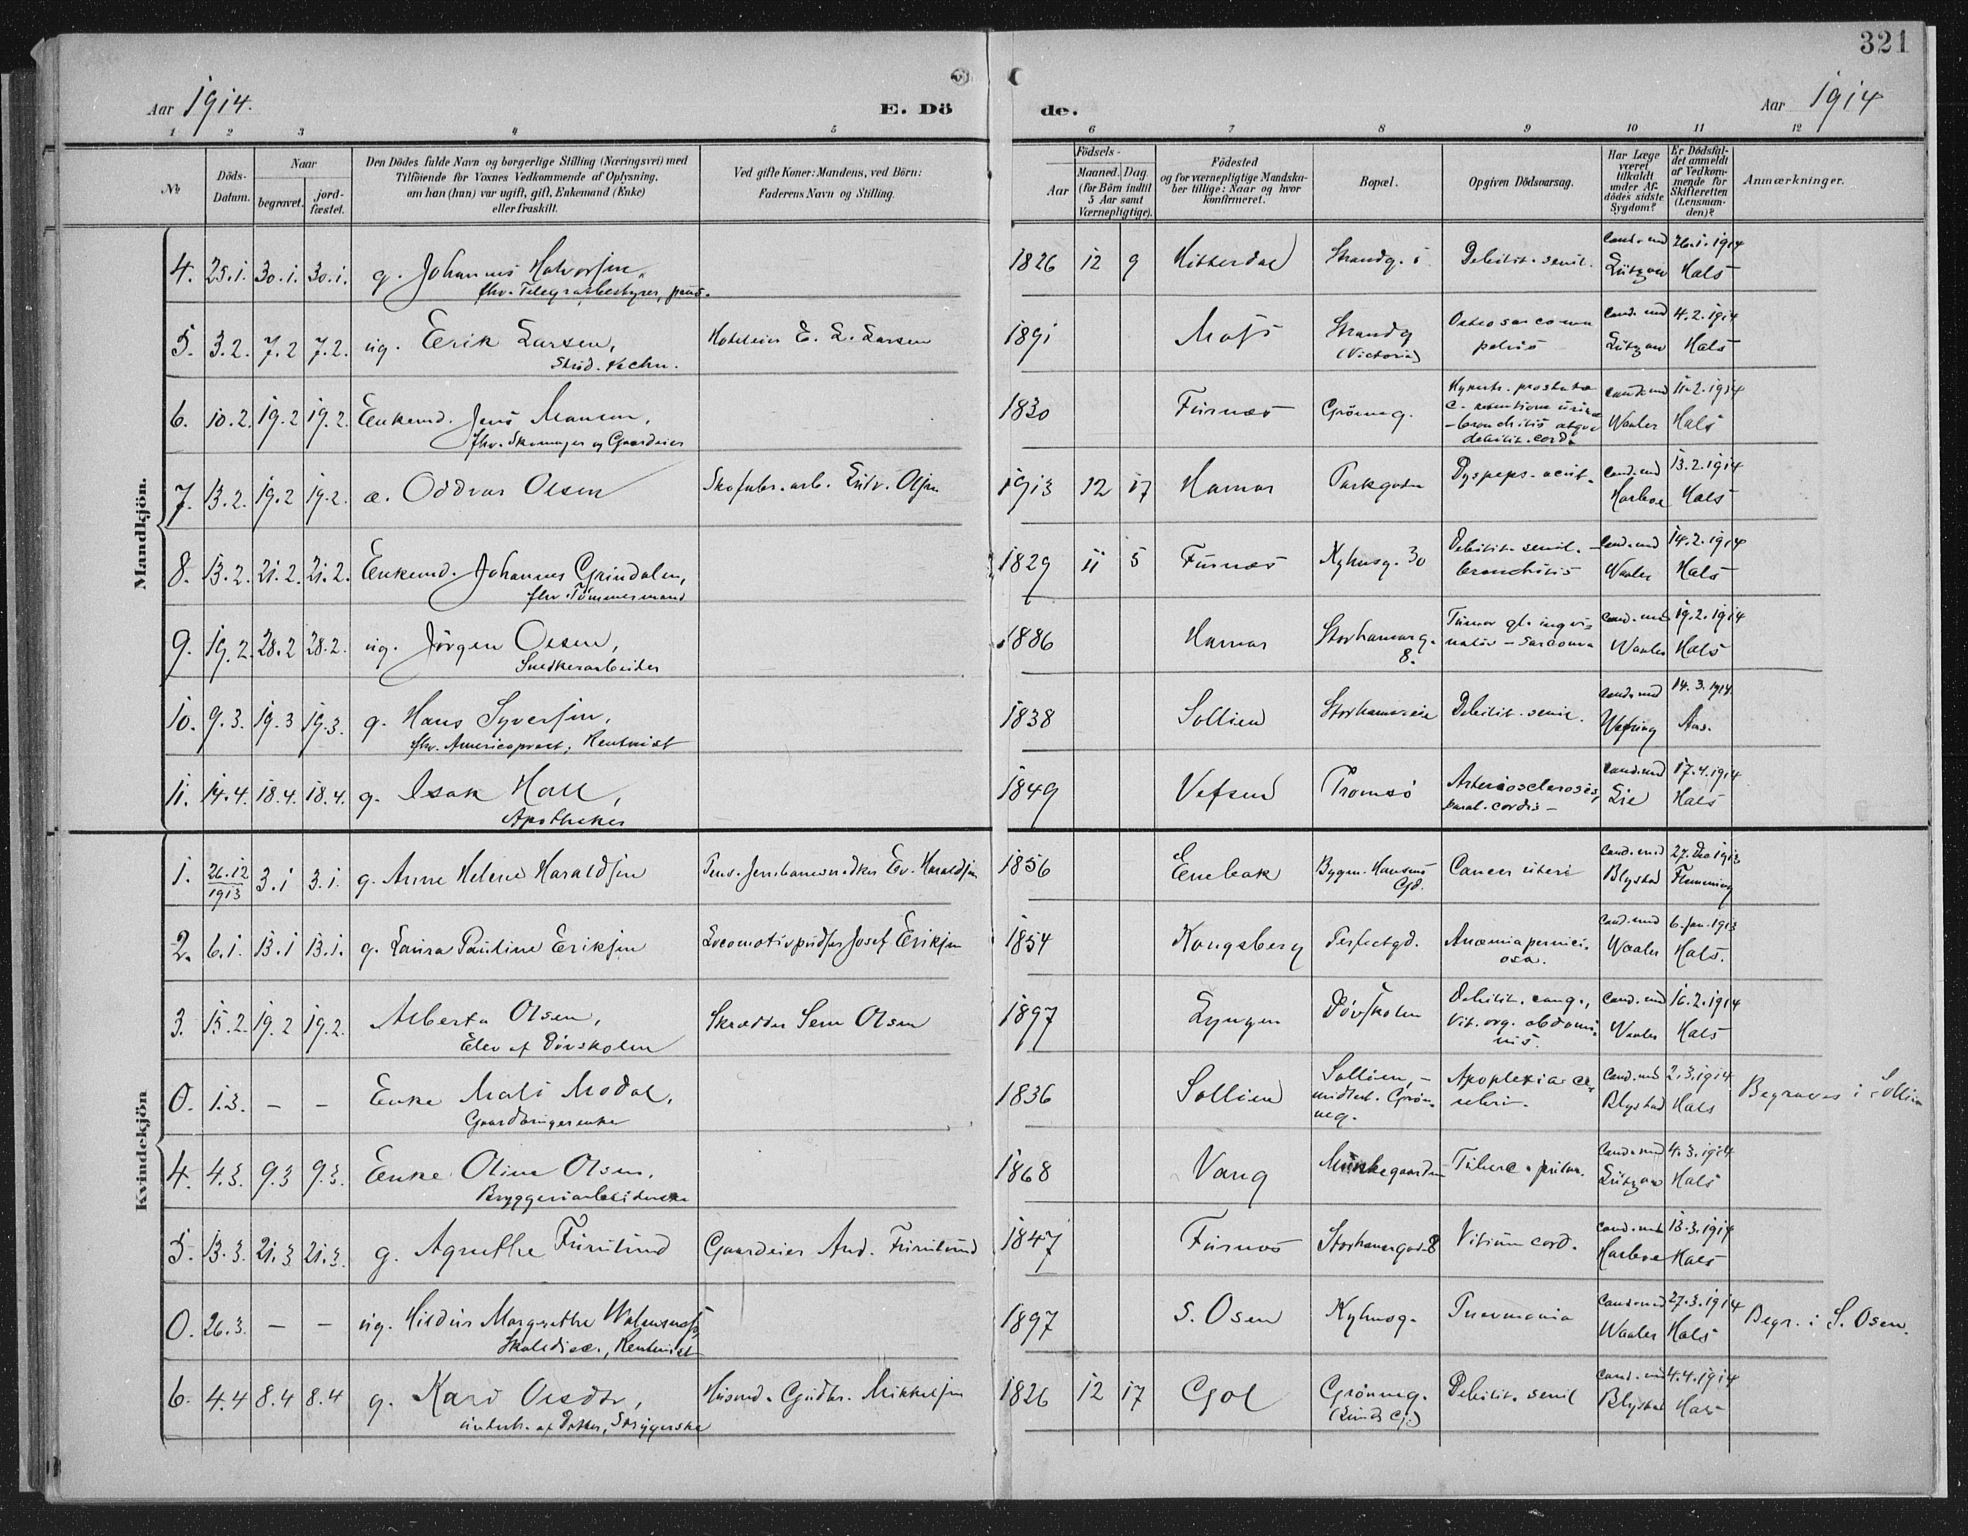 321
Aar 1914.
E. Dö de.
Aar 1914
1 2 3 4 5 6 7 8 9 10 11 12
No
Döds-Datum.
Naar
begravet.
jord-fæstet.
Den Dödes fulde Navn og borgerlige Stilling (Næringsvei) med
Tilföiende for Voxnes Vedkommende af Oplysning,
om han (hun) var ugift, gift, Enkemand (Enke)
eller fraskilt.
Ved gifte Koner: Mandens, ved Börn:
Faderens Navn og Stilling.
Födsels-
Aar
Maaned. Dag
(for Börn indtil
5 Aar samt
Værnepligtige).
Födested
og for værnepligtige Mandska-
ber tillige: Naar og hvor
konfirmeret.
Bopæl.
Opgiven Dödsaarsag.
Har Læge
været
tilkaldt
under Af-
dödes sidste
Sygdom?
Er Dödsfal-
det anmeldt
af Vedkom-
mende for
Skifteretten
(Lensman-
den)?
Anmærkninger.
Mandkjön.
4. 25.1. 30.1. 30.1. g. Johannes Halvorsen, 1826 12 9 Hitterdal Strandg. Debilit. senil. Cand. med Lützow 26.1.1914 Hals
fhv. Telegrafbestyrer, pens.
5. 3.2. 7.2 7.2. ug. Erik Larsen, Hoteleier E. L. Larsen 1891 Strandg (Victoria) Osteosarcoma pelvis Cand. med Lützow 4.2.1914 Hals
Stud. techn.
6. 10.2. 19.2 19.2. Enkemd. Jens Mansen, 1830 Furnæs Grönneg. Hypertr. prostatæ bronchitis debilit. cord. Cand. med Waaler 11.2.1914 Hals
fhv. Skomager og Gaardeier
7. 13.2. 19.2 19.2. æ. Oddvar Olsen Skofabr. arb. Olsen 1913 12 17 Hamar Parkgaden Dyspeps. acut. Cand. med Harboe 13.2.1914 Hals
8. 13.2. 21.2. 21.2. Enkemd. Johannes Grindalen, 1829 11 5 Furnæs Kyhusg. 30 Debilit. senil. - bronchitis Cand. med Waaler 14.2.1914 Hals
fhv. Tömmermand
9. 19.2. 28.2 28.2. ug. Jörgen Olsen, 1886 Hamar Storhamarg. 8. Tumor gl. - sarcoma Cand. med Waaler 19.2.1914 Hals
Snedkerarbeider
10. 9.3. 19.3 19.3. g. Hans Syversen, 1838 Sollien Debilit. senil. Cand. med 14.3.1914
fhv. Rentenist
11. 14.4. 18.4. 18.4. g. Isak Hall, 1849 Vefsen Tromsö Arteriosclerosis, paral. cordis - Cand. med Lie 17.4.1914 Hals
Apotheker
Kvindekjön
1. 26.12 1913 3.1 3.1. g. Anne Helene Haraldsen Pens. Haraldsen 1856 Enebak Bygm. Hansens Gd. Cancer uteri Cand. med Blystad 27. Dec 1913 Flemming
2. 6.1. 13.1 13.1. g. Laura Pauline Eriksen Locomotivpudser Josef Eriksen 1854 Kongsberg Perfectgd. Anæmia perniciosa. Cand. med Waaler 6. Jan. 1913 Hals.
3. 15.2. 19.2 19.2. Alberta Olsen, Skrædder Sern Olsen 1897 Lyngen Dövskolen Debilit. cong., Vit. org. abdominis. Cand. med Waaler 16.2.1914 Hals
Elev af Dövskolen
0. 1.3. - - Enke Mali Modal, 1836 Sollien Sollien, - midlert. Grönneg. Apoplexia cerebri. Cand. med Blystad 2.3.1914 Hals Begraves i Sollien
Gaardbrugerenke
4. 4.3. 9.3 9.3. Enke Oline Olsen, 1868 Vang Munkegaarden Tuberc. pulm. Cand. med Lützow 4.3.1914 Hals
Bryggeriarbeiderske
5. 13.3. 21.3 21.3. g. Agnethe Furulund Gaardeier And. Furulund 1847 Furnæs Storhamargaden 8 Vitium cord. Cand. med Harboe 13.3.1914 Hals
0. 26.3. - - ug. Margrethe 1897 S. Osen Kyhusg. Pneumonia Cand. med Waaler 27.3.1914 Hals Begr. i S. Osen.
6. 4.4 8.4 8.4 g. Kari Olsdtr, Husmd. Gudbr. Mikkelsen 1826 12 17 Gol Grönneg. (Lunds Gd.) Debilit. senil Cand. med Blystad 4.4.1914 Hals